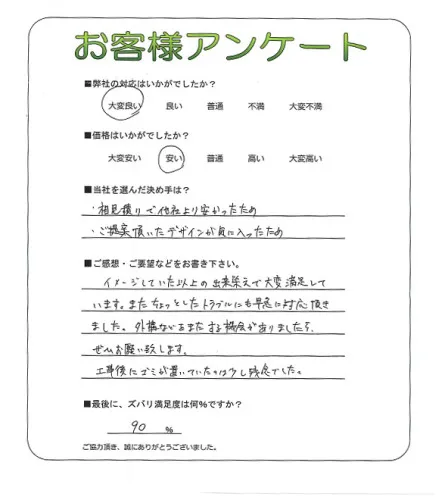 お客様アンケート
■弊社の対応はいかがでしたか？
大変良い 良い 普通 不満 大変不満
■価格はいかがでしたか？
大変安い 安い 普通 高い 大変高い
■当社を選んだ決め手は？
・相見積りで他社より安かったため
・ご提案頂いたデザインが気に入ったため
■ご感想・ご要望などをお書き下さい。
イメージしていた以上の出来栄えで大変満足して
います。またちょっとしたトラブルにも早急に対応頂き
ました。外構などをまたする機会がありましたら、
ぜひお願い致します。
工事後にゴミが置いていたのは少し残念でした。
■最後に、ズバリ満足度は何%ですか？
90 %
ご協力頂き、誠にありがとうございました。